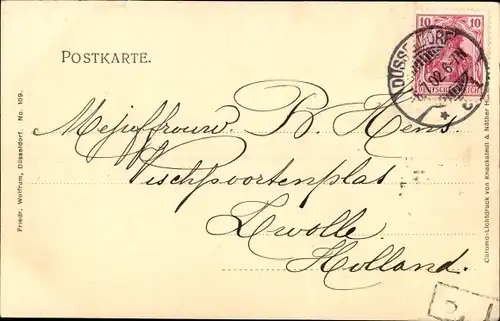 POSTKARTE.
10 10
DEUTSCHES REICH
DÜSSELDORF
02. 6-7N
Mejuffrouw. B. Hens.
Vischpoortenplas
Zwolle.
Holland.
Friedr. Wolfrum, Düsseldorf. No. 109.
Chromo-Lichtdruck von Knackstedt & Näther